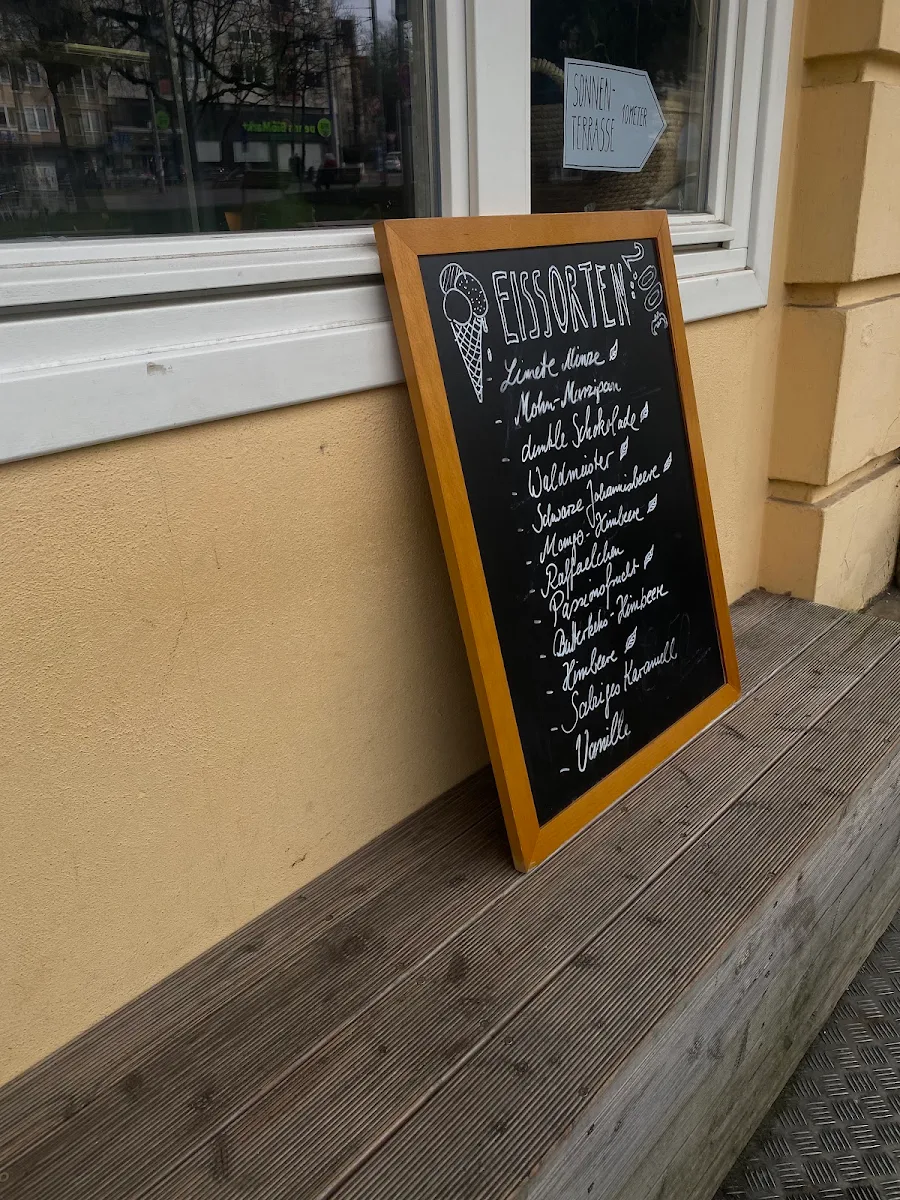 SONNEN-
TERRASSE
10 METER
EISSORTEN
- Limette Minze
- Mohn-Marzipan
- dunkle Schokolade
- Waldmeister
- Schwarze Johannisbeere
- Mango-Himbeere
- Raffaelchen
- Passionsfrucht
- Butterkeks-Himbeere
- Himbeere
- Salziges Karamell
- Vanille